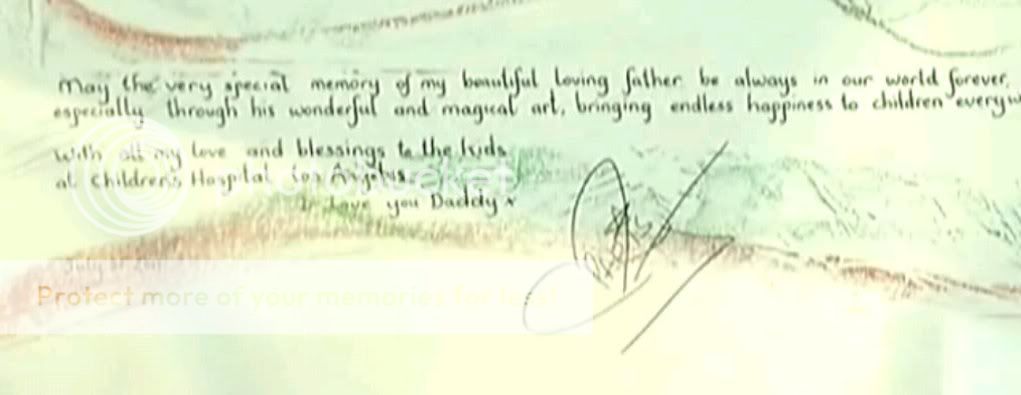 May the very special memory of my beautiful loving father be always in our world forever,
especially through his wonderful and magical art, bringing endless happiness to children everyw
With all my love and blessings to the kids
at Childrens Hospital Los Angelus.
I love you Daddy x
photobucket
Protect more of your memories for less!